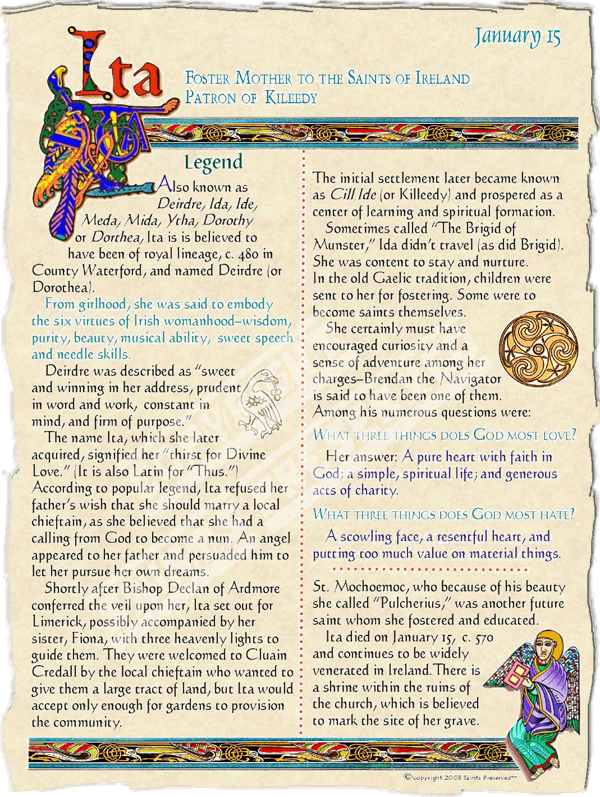 January 15
Ita
Foster Mother to the Saints of Ireland
Patron of Kileedy
Legend
Also known as
Deirdre, Ida, Ide,
Meda, Mida, Ytha, Dorothy
or Dorthea, Ita is is believed to
have been of royal lineage, c. 480 in
County Waterford, and named Deirdre (or
Dorothea).
From girlhood, she was said to embody
the six virtues of Irish womanhood–wisdom,
purity, beauty, musical ability, sweet speech
and needle skills.
Deirdre was described as "sweet
and winning in her address, prudent
in word and work, constant in
mind, and firm of purpose."
The name Ita, which she later
acquired, signified her "thirst for Divine
Love." (It is also Latin for "Thus.")
According to popular legend, Ita refused her
father's wish that she should marry a local
chieftain, as she believed that she had a
calling from God to become a nun. An angel
appeared to her father and persuaded him to
let her pursue her own dreams.
Shortly after Bishop Declan of Ardmore
conferred the veil upon her, Ita set out for
Limerick, possibly accompanied by her
sister, Fiona, with three heavenly lights to
guide them. They were welcomed to Cluain
Credall by the local chieftain who wanted to
give them a large tract of land, but Ita would
accept only enough for gardens to provision
the community.
The initial settlement later became known
as Cill Ide (or Killeedy) and prospered as a
center of learning and spiritual formation.
Sometimes called "The Brigid of
Munster," Ida didn't travel (as did Brigid).
She was content to stay and nurture.
In the old Gaelic tradition, children were
sent to her for fostering. Some were to
become saints themselves.
She certainly must have
encouraged curiosity and a
sense of adventure among her
charges–Brendan the Navigator
is said to have been one of them.
Among his numerous questions were:
What three things does God most love?
Her answer: A pure heart with faith in
God; a simple, spiritual life; and generous
acts of charity.
What three things does God most hate?
A scowling face, a resentful heart, and
putting too much value on material things.
St. Mochoemoc, who because of his beauty
she called "Pulcherius," was another future
saint whom she fostered and educated.
Ita died on January 15, c. 570
and continues to be widely
venerated in Ireland. There is
a shrine within the ruins of
the church, which is believed
to mark the site of her grave.
©copyright 2003 Saints Preserved™